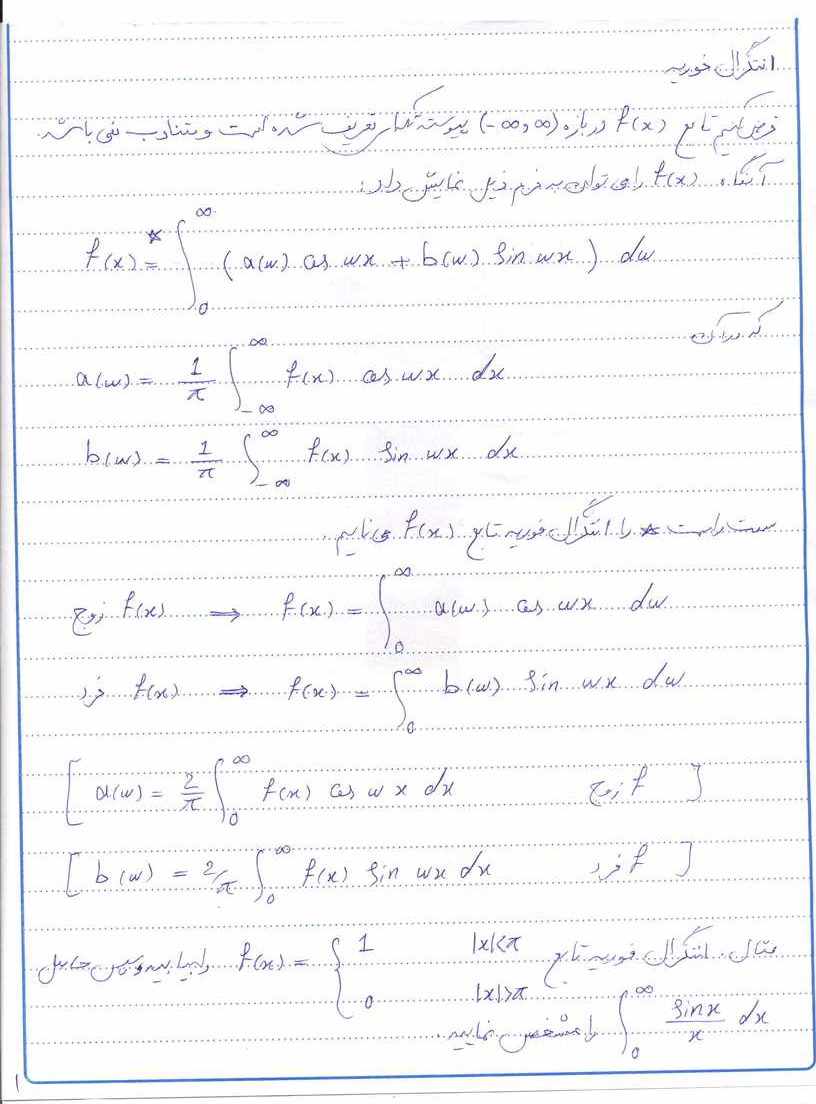 انتگرال فوریه
فرض کنیم تابع f(x) در بازه (-∞,∞) پیوسته تکه‌ای تعریف شده است و متناوب نمی باشد.
آنگاه f(x) را می توان به فرم ذیل نمایش داد:
f(x) =* ∫₀^∞ (a(w) cos wx + b(w) sin wx) dw
که در آن
a(w) = 1/π ∫_{-∞}^{∞} f(x) cos wx dx
b(w) = 1/π ∫_{-∞}^{∞} f(x) sin wx dx
سمت راست * را انتگرال فوریه تابع f(x) می نامیم.
زوج f(x) ⇒ f(x) = ∫₀^∞ a(w) cos wx dw
فرد f(x) ⇒ f(x) = ∫₀^∞ b(w) sin wx dw
[ a(w) = 2/π ∫₀^∞ f(x) cos wx dx f زوج ]
[ b(w) = 2/π ∫₀^∞ f(x) sin wx dx f فرد ]
مثال. انتگرال فوریه تابع f(x) = { 1 |x|<π ; 0 |x|>π را بیابید و سپس حاصل
∫₀^∞ sinx/x dx را مشخص نمایید.
1